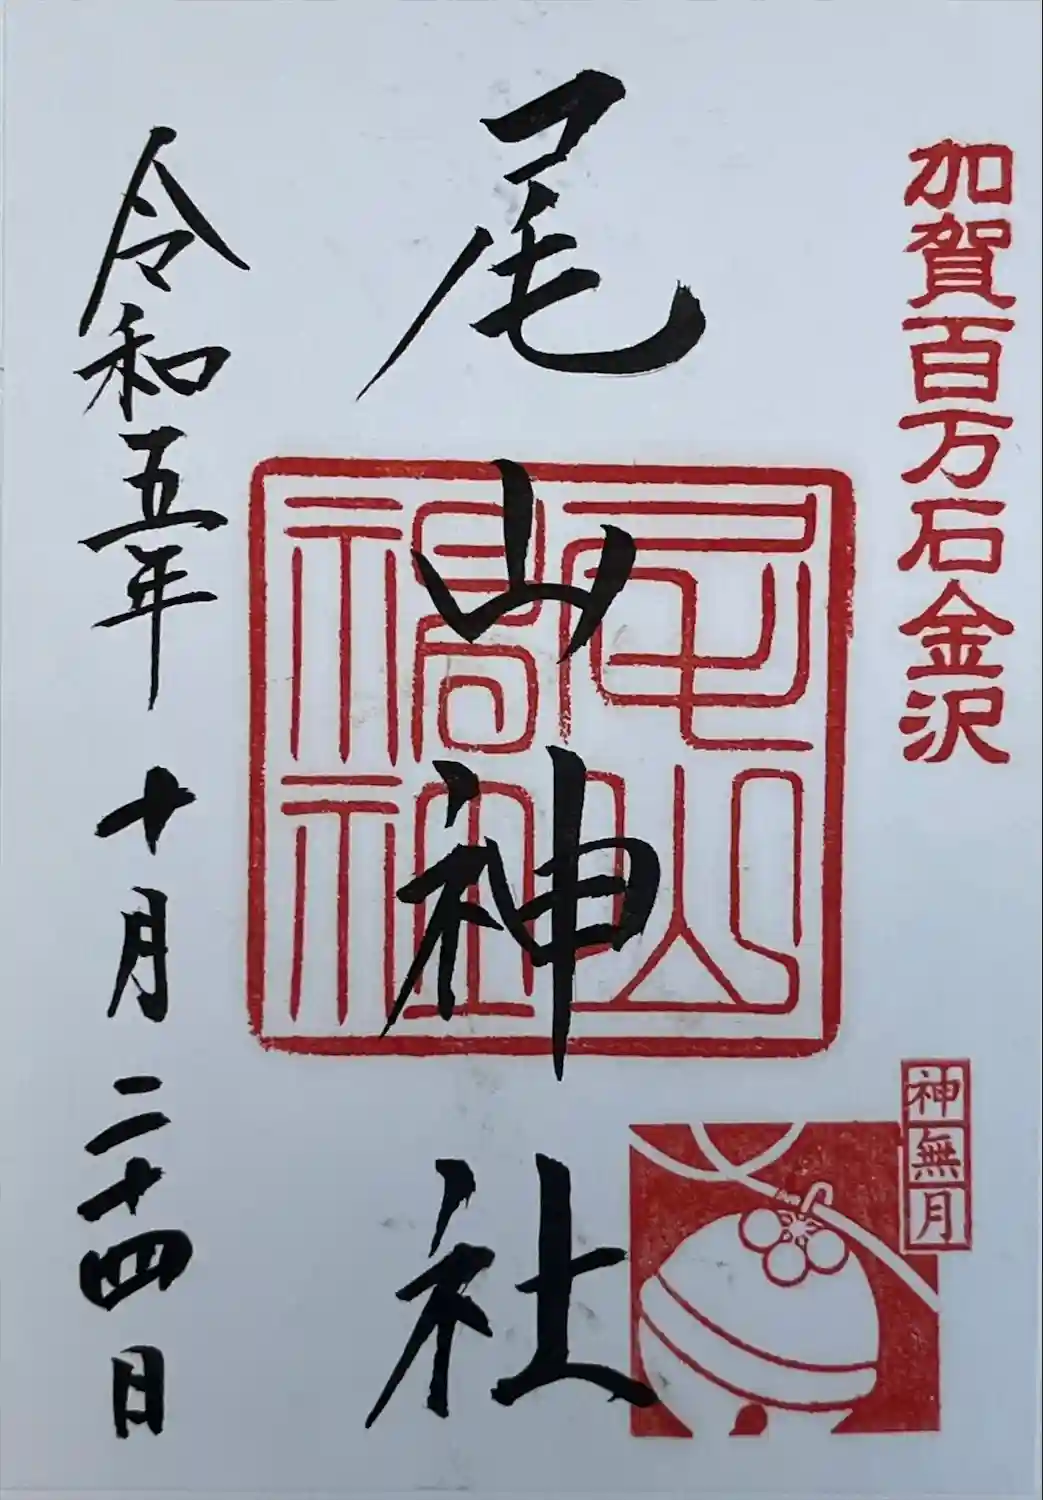 加賀百万石金沢
尾山神社
尾山神社
神無月
令和五年十月二十四日